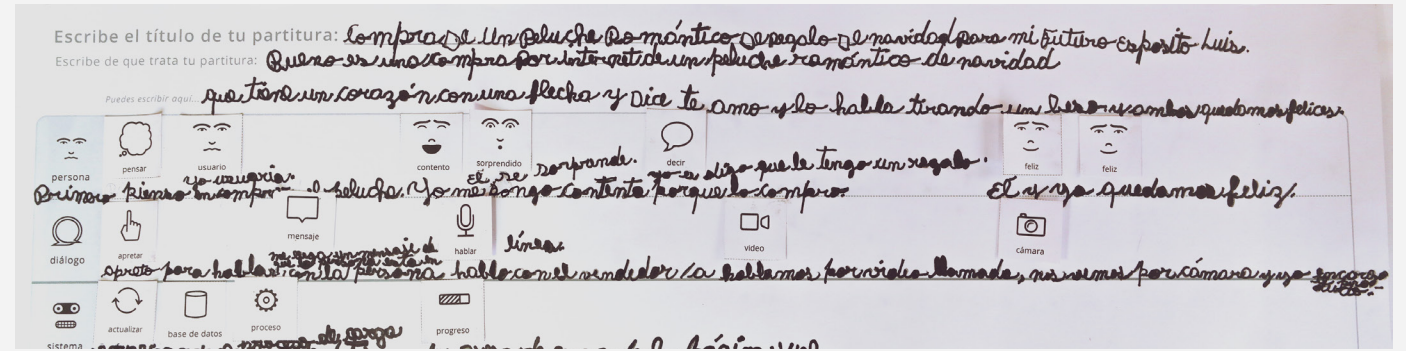 Escribe el título de tu partitura: Compra De Un Peluche Romántico De regalo De navidad para mi Futuro Esposito Luis.
Escribe de que trata tu partitura: Bueno es una compra por internet de un peluche romántico de navidad
Puedes escribir aquí... que tiene un corazón con una flecha y Dice te amo y lo habla tirando un beso y ambos quedamos felices.
persona pensar usuario contento sorprendido decir feliz feliz
yo usuaria. él se sorprende. yo le digo que le tengo un regalo.
Primero pienso en comprar el peluche. Yo me pongo contenta porque lo compro. Él y yo quedamos feliz.
diálogo apretar mensaje hablar video cámara
me llega un mensaje de
línea.
apreto para hablar con la persona hablo con el vendedor/a hablamos por video llamada, nos vemos por cámara y yo
sistema actualizar base de datos proceso progreso
proceso de carga